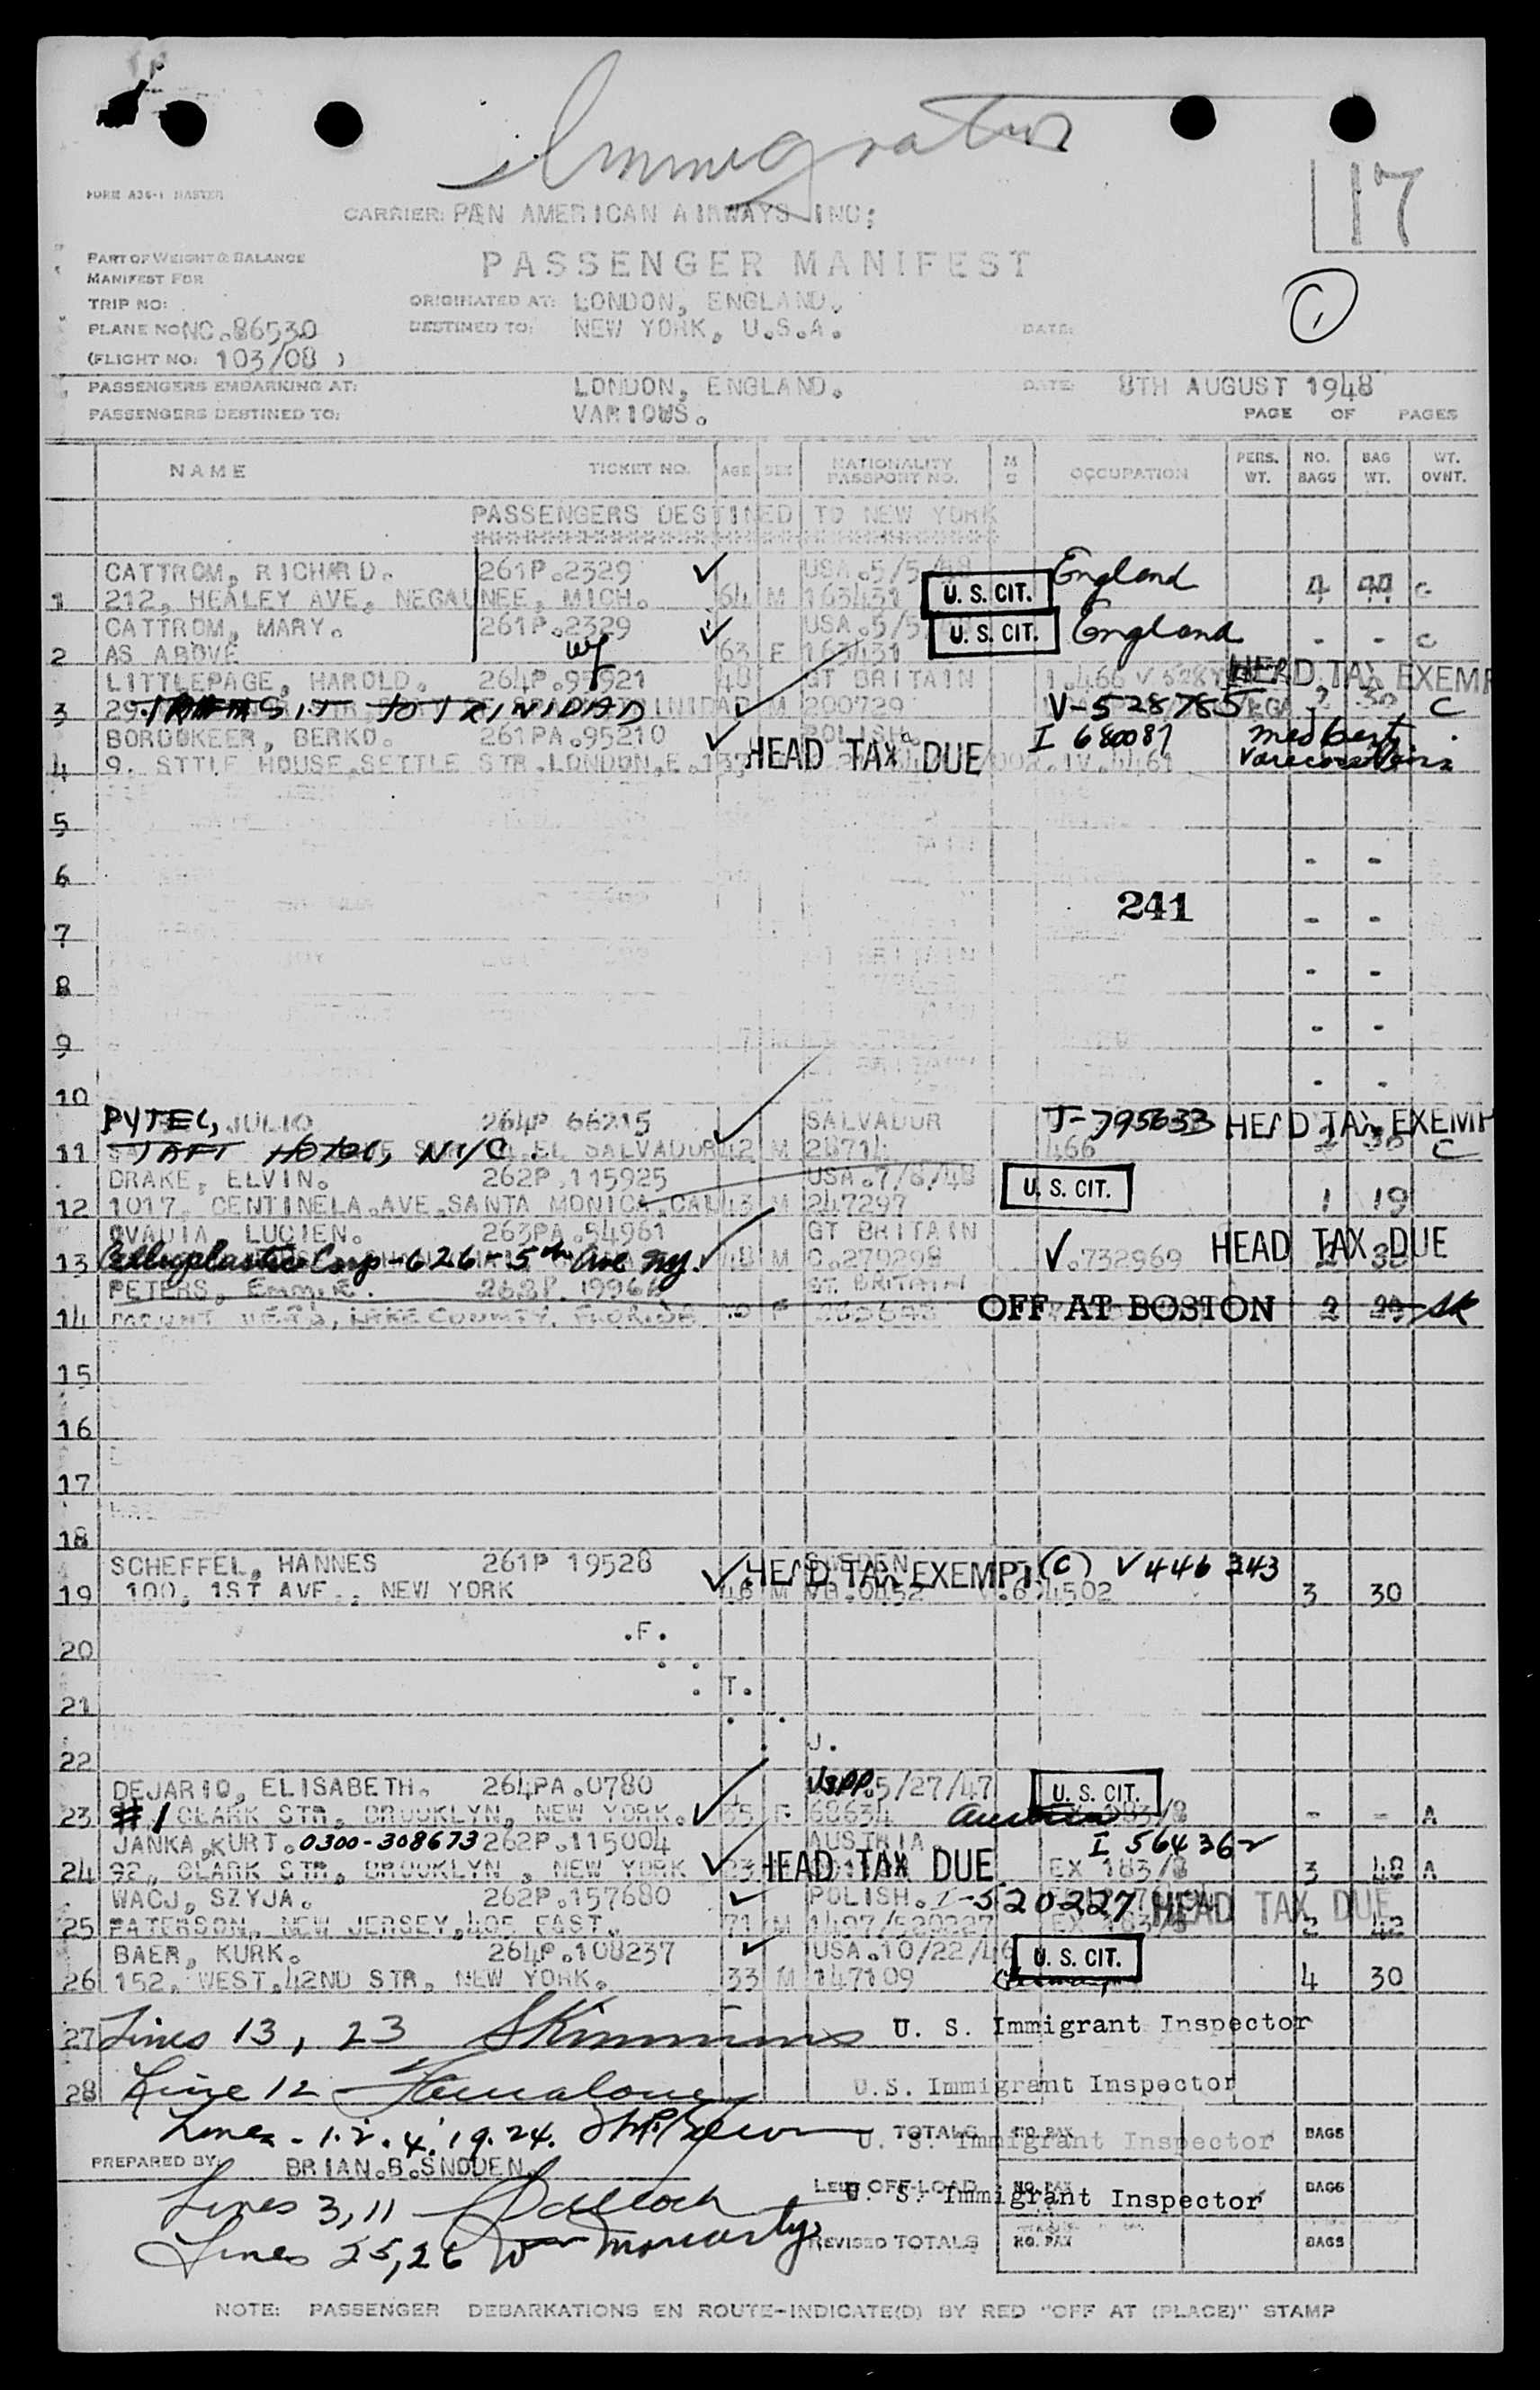 Immigration
17
FORM A36-1 MASTER
CARRIER: PAN AMERICAN AIRWAYS INC;
PART OF WEIGHT & BALANCE
MANIFEST FOR
PASSENGER MANIFEST
1
TRIP NO:
ORIGINATED AT: LONDON, ENGLAND.
PLANE NO NC.86530
DESTINED TO: NEW YORK, U.S.A.
DATE:
(FLIGHT NO: 103/08 )
PASSENGERS EMBARKING AT: LONDON, ENGLAND. DATE: 8TH AUGUST 1948
PASSENGERS DESTINED TO: VARIOUS. PAGE OF PAGES
NAME TICKET NO. AGE SEX NATIONALITY PASSPORT NO. M S OCCUPATION PERS. WT. NO. BAGS BAG WT. WT. OVNT.
PASSENGERS DESTINED TO NEW YORK
CATTROM, RICHARD. 261P.2329 USA.5/5/48 England
1 212, HEALEY AVE, NEGAUNEE, MICH. 64 M 163431 U. S. CIT. 4 44 C
CATTROM, MARY. 261P.2329 USA.5/5 U. S. CIT. England - - C
2 AS ABOVE 63 F 163431
LITTLEPAGE, HAROLD. 264P.95921 48 GT BRITAIN HEAD TAX EXEMP
3 TRANSIT TO TRINIDAD M 200729 V-528785 30 C
BORODKEER, BERKO. 261PA.95210 POLISH. I 680087 med cert
4 9, STTLE HOUSE,SETTLE STR.LONDON,E.1 37 HEAD TAX DUE IV.4461
5
6 - -
241
7 - -
8 - -
9 - -
10 - -
PYTEL, JULIO 264P 66215 SALVADOR T-795633 HEAD TAX EXEMP
11 TAFT Hotel, NYC. EL SALVADOR 42 M 28714 466 30 C
DRAKE, ELVIN. 262P.115925 USA.7/8/48 U. S. CIT.
12 1017, CENTINELA.AVE.SANTA MONICA,CAL 43 M 247297 1 19
OVADIA LUCIEN. 263PA.54961 GT BRITAIN
13 Celluplastic Corp-626-5th Ave NY. 48 M C.279298 V.732969 HEAD TAX DUE
PETERS, Emm.E. 262P. 19966 GT. BRITAIN
14 LAKE COUNTY, FLORIDA F OFF AT BOSTON 2
15
16
17
18
SCHEFFEL, HANNES 261P 19528 SWEDEN HEAD TAX EXEMPT (C) V 446 343
19 100, 1ST AVE., NEW YORK 46 M VB.0452 4502 3 30
.F.
20
.T.
21
J.
22
DEJARIO, ELISABETH. 264PA.0780 USPP.5/27/47 U. S. CIT.
23 #1 CLARK STR, BROOKLYN, NEW YORK. 35 F 68634 Austria - - A
JANKA,KURT. 0300-308673 262P.115004 AUSTRIA. I 564362
24 92, CLARK STR, BROOKLYN , NEW YORK 23 HEAD TAX DUE EX 183/8 3 48 A
WACJ, SZYJA. 262P.157680 POLISH. I-520227 HEAD TAX DUE
25 PATERSON, NEW JERSEY,405 EAST. 71 M 1497/520227 EX 183/8 2 42
BAER, KURK. 264P.108237 USA.10/22/46 U. S. CIT.
26 152, WEST.42ND STR, NEW YORK. 33 M 147109 Germany 4 30
27 Lines 13, 23 U. S. Immigrant Inspector
28 Line 12 U.S. Immigrant Inspector
Lines - 1. 2. 4. 19. 24. TOTALS NO. PAX BAGS
U. S. Immigrant Inspector
PREPARED BY: BRIAN.B.SNODEN.
LESS OFF-LOAD NO. PAX BAGS
U. S. Immigrant Inspector
Lines 3, 11
Lines 25, 26 Wm Moriarty
REVISED TOTALS NO. PAX BAGS
NOTE: PASSENGER DEBARKATIONS EN ROUTE-INDICATE(D) BY RED "OFF AT (PLACE)" STAMP